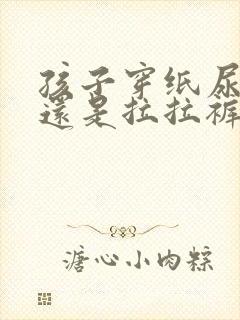 孩子穿纸尿
還是拉拉裤
溏心小肉粽